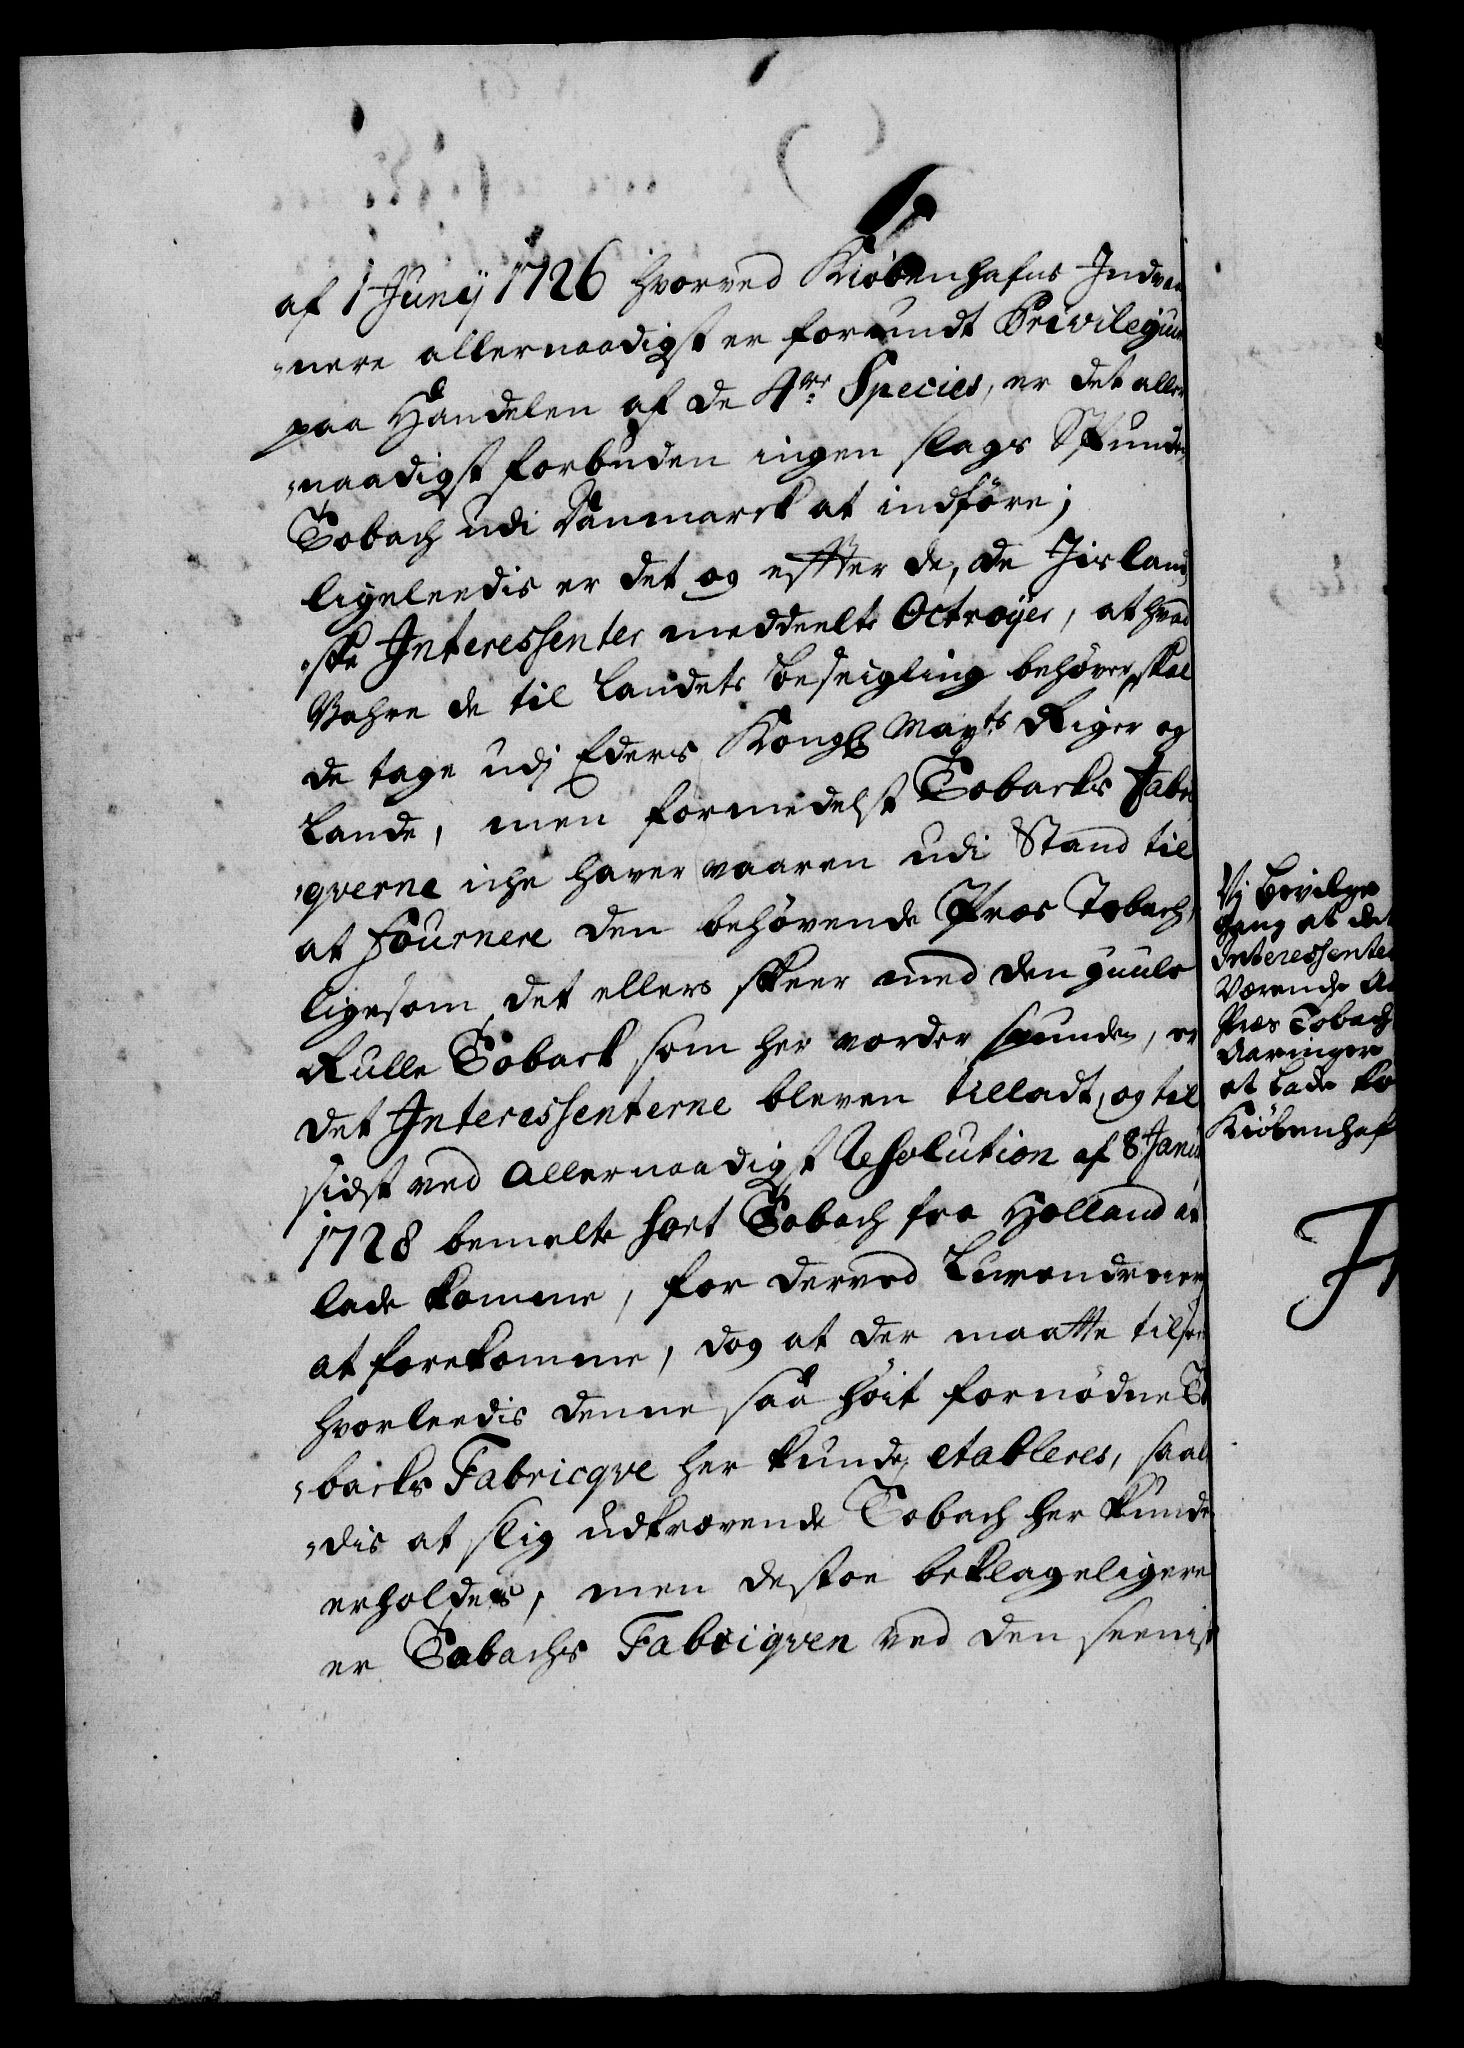 af 1 Junij 1726 hvorved Kiöbenhafns Indvaa
nere allernaadigst er forundt Privilegium
paa Handelen af de 4re Species, er det aller
naadigst forbuden ingen slags Spunden
Toback udi Danmarck at indföre;
ligeleedis er det og effter de, de Jisland
ske Interessenter meddeelte Octroyer, at hvad
Vahre de til Landets Beseigling behöver, skal
de tage udj Eders Kongl Mayts Riger og
Lande, men formedelst Tobacks Fabri
qverne iche haver vaaren udi Stand til
at fournere den behövende Præs Tobach,
ligesom det ellers skeer med den guule
Rulle Toback som her vorder spunden, er
det Interessenterne bleven tilladt, og til
sidst ved Allernaadigst Resolution af 8 Janu
1728 bemelte sort Tobach fra Holland at
lade komme, for derved Lurendreier
at forekomme, dog at der maatte tilsees
hvorleedis denne saa höit fornödne To
backs Fabricqve her kunde etableres, saale
dis at slig udkrævende Tobach her kunde
erholdes, men destoe beklageligere
er Tobachs Fabriqven ved den seenist
Vj bevilge
gang at de
Interessente
Værende A
Præs Tobach
Aaringer
at lade ko
Kiöbenhaf
F